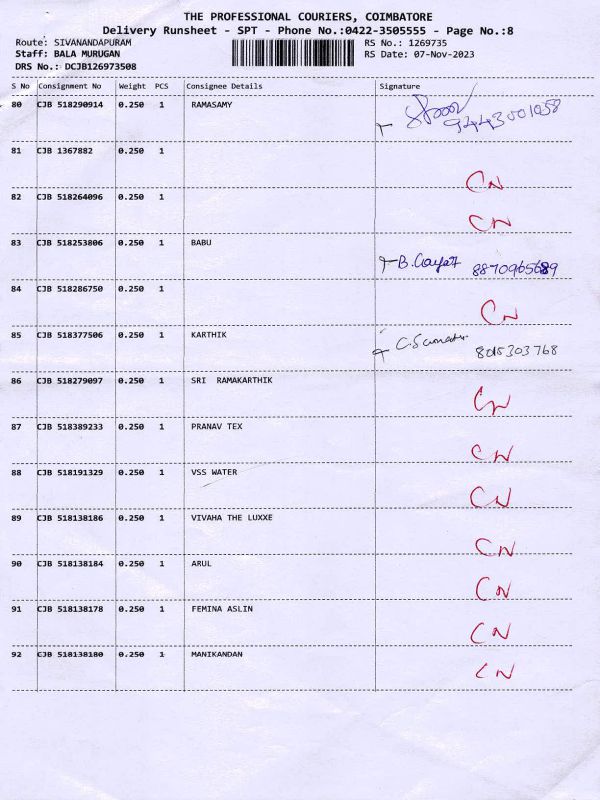 THE PROFESSIONAL COURIERS, COIMBATORE
Delivery Runsheet - SPT - Phone No.:0422-3505555 - Page No.:8
Route: SIVANANDAPURAM RS No.: 1269735
Staff: BALA MURUGAN RS Date: 07-Nov-2023
DRS No.: DCJB126973508
S No Consignment No Weight PCS Consignee Details Signature
80 CJB 518290914 0.250 1 RAMASAMY
9443001058
81 CJB 1367882 0.250 1
CN
82 CJB 518264096 0.250 1
CN
83 CJB 518253806 0.250 1 BABU
B. 8870965689
84 CJB 518286750 0.250 1
CN
85 CJB 518377506 0.250 1 KARTHIK
8015303768
86 CJB 518279097 0.250 1 SRI RAMAKARTHIK
CN
87 CJB 518389233 0.250 1 PRANAV TEX
CN
88 CJB 518191329 0.250 1 VSS WATER
CN
89 CJB 518138186 0.250 1 VIVAHA THE LUXXE
CN
90 CJB 518138184 0.250 1 ARUL
CN
91 CJB 518138178 0.250 1 FEMINA ASLIN
CN
92 CJB 518138180 0.250 1 MANIKANDAN
CN